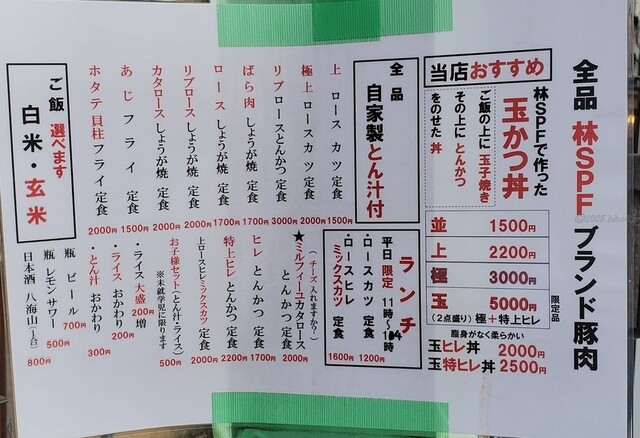 全品 林SPF ブランド豚肉
当店おすすめ
林SPFで作った
玉かつ丼
ご飯の上に 玉子焼き
その上に とんかつ
をのせた 丼
並 1500円
上 2200円
極 3000円
玉 5000円
(2点盛り) 極+特上ヒレ
限定品
脂身がなく柔らかい
玉ヒレ丼 2000円
玉特ヒレ丼 2500円
全品
自家製とん汁付
上 ロース カツ 定食 1500円
極上 ロース カツ 定食 2000円
リブロースとんかつ 定食 3000円
ばら肉 しょうが焼 定食 1700円
ロース しょうが焼 定食 1700円
リブロース しょうが焼 定食 2000円
カタロース しょうが焼 定食 2000円
あじ フライ 定食 1500円
ホタテ 貝柱フライ 定食 2000円
ご飯 選べます
白米・玄米
ランチ
平日 限定 11時〜14時
・ロースカツ 定食 1200円
・ロースヒレ
ミックスカツ 定食 1600円
(チーズ入れますか?)
★ミルフィーユカタロース
とんかつ 定食 2000円
ヒレ とんかつ 定食 1700円
特上ヒレ とんかつ 定食 2200円
上ロースヒレミックスカツ 定食 2000円
お子様セット(とん汁・ライス) 500円
※未就学児に限ります
・ライス 大盛 200円 増
・ライス おかわり 200円
・とん汁 おかわり 300円
瓶 ビール 700円
瓶 レモンサワー 500円
日本酒 八海山(一合) 800円